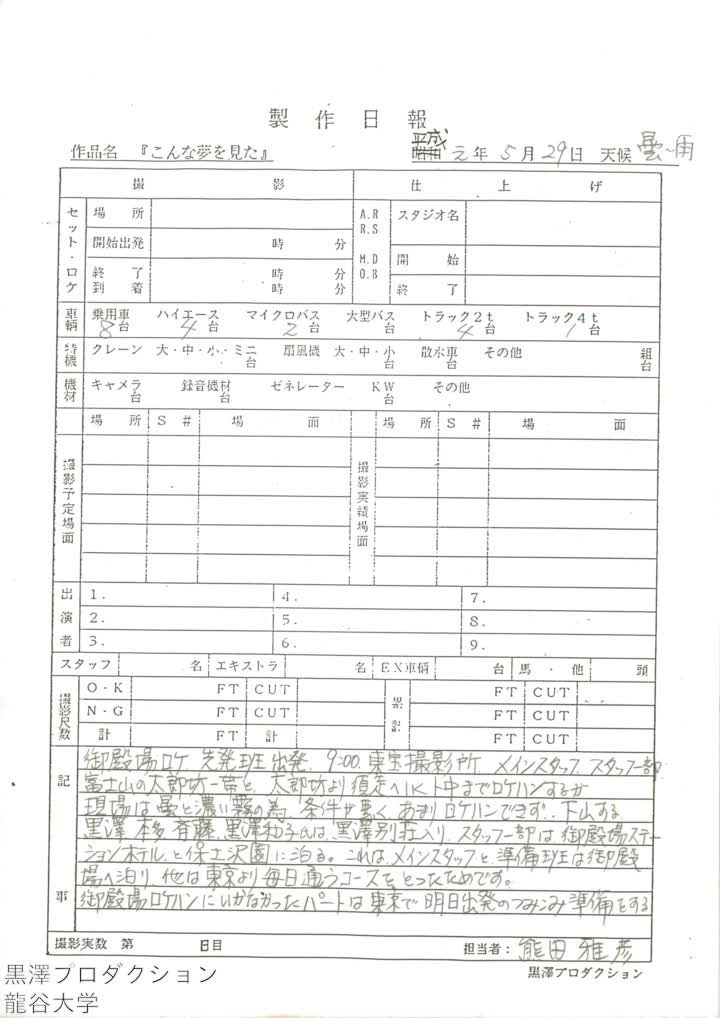 製作日報
作品名 『こんな夢を見た』 平成 元年 5月 29日 天候 曇〜雨
撮影 仕上げ
セット・ロケ 場所 A.R R.S スタジオ名
開始出発 時 分 M.D O.B 開始
終了 時 分
到着 時 分 終了
車輌 乗用車 8台 ハイエース 4台 マイクロバス 2台 大型バス トラック2t 4台 トラック4t 1台
特機 クレーン 大・中・小・ミニ 台 扇風機 大・中・小 台 散水車 台 その他 組 台
機材 キャメラ 台 録音機材 台 ゼネレーター KW 台 その他
場所 S# 場面 場所 S# 場面
撮影予定場面 撮影実績場面
出演者 1. 4. 7.
2. 5. 8.
3. 6. 9.
スタッフ 名 エキストラ 名 EX車輌 台 馬・他 頭
撮影尺数 O-K FT CUT 累計 FT CUT
N-G FT CUT FT CUT
計 FT 計 FT CUT
記事
御殿場ロケ 先発班出発. 9:00. 東宝撮影所. メインスタッフ スタッフ一部
富士山の太郎坊一帯と、太郎坊より須走へ1K ト中までロケハンするが
現場は曇と濃い霧の為、条件が悪く、あまりロケハンできず、下山する
黒澤 本多 斉藤、黒澤和子氏は、黒澤別荘入り. スタッフ一部は御殿場ステー
ションホテル、と保土沢園に泊る。これは、メインスタッフと、準備班は御殿
場へ泊り、他は東京より毎日通うコースをとったためです。
御殿場ロケハンにいかなかったパートは東京で明日出発のつみこみ準備をする
撮影実数 第 日目 担当者: 熊田雅彦
黒澤プロダクション
黒澤プロダクション
龍谷大学